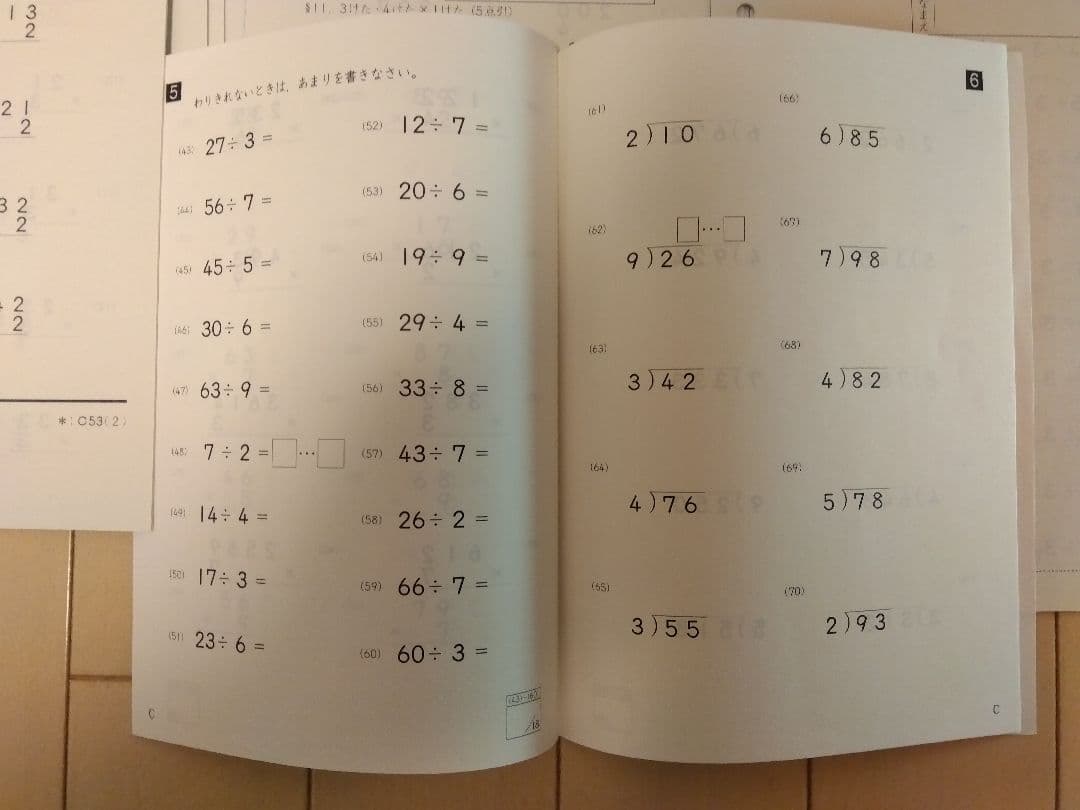 §11. 3けた・4けた×1けた (5点引)
1 3
2
2 1
2
3 2
2
2
2
*:C53(2)
5
わりきれないときは、あまりを書きなさい。
(43) 27÷3=
(44) 56÷7=
(45) 45÷5=
(46) 30÷6=
(47) 63÷9=
(48) 7÷2=□…□
(49) 14÷4=
(50) 17÷3=
(51) 23÷6=
(52) 12÷7=
(53) 20÷6=
(54) 19÷9=
(55) 29÷4=
(56) 33÷8=
(57) 43÷7=
(58) 26÷2=
(59) 66÷7=
(60) 60÷3=
(43)-(60)
/18
C
6
(61)
2)10
(62)
□…□
9)26
(63)
3)42
(64)
4)76
(65)
3)55
(66)
6)85
(67)
7)98
(68)
4)82
(69)
5)78
(70)
2)93
C
なまえ